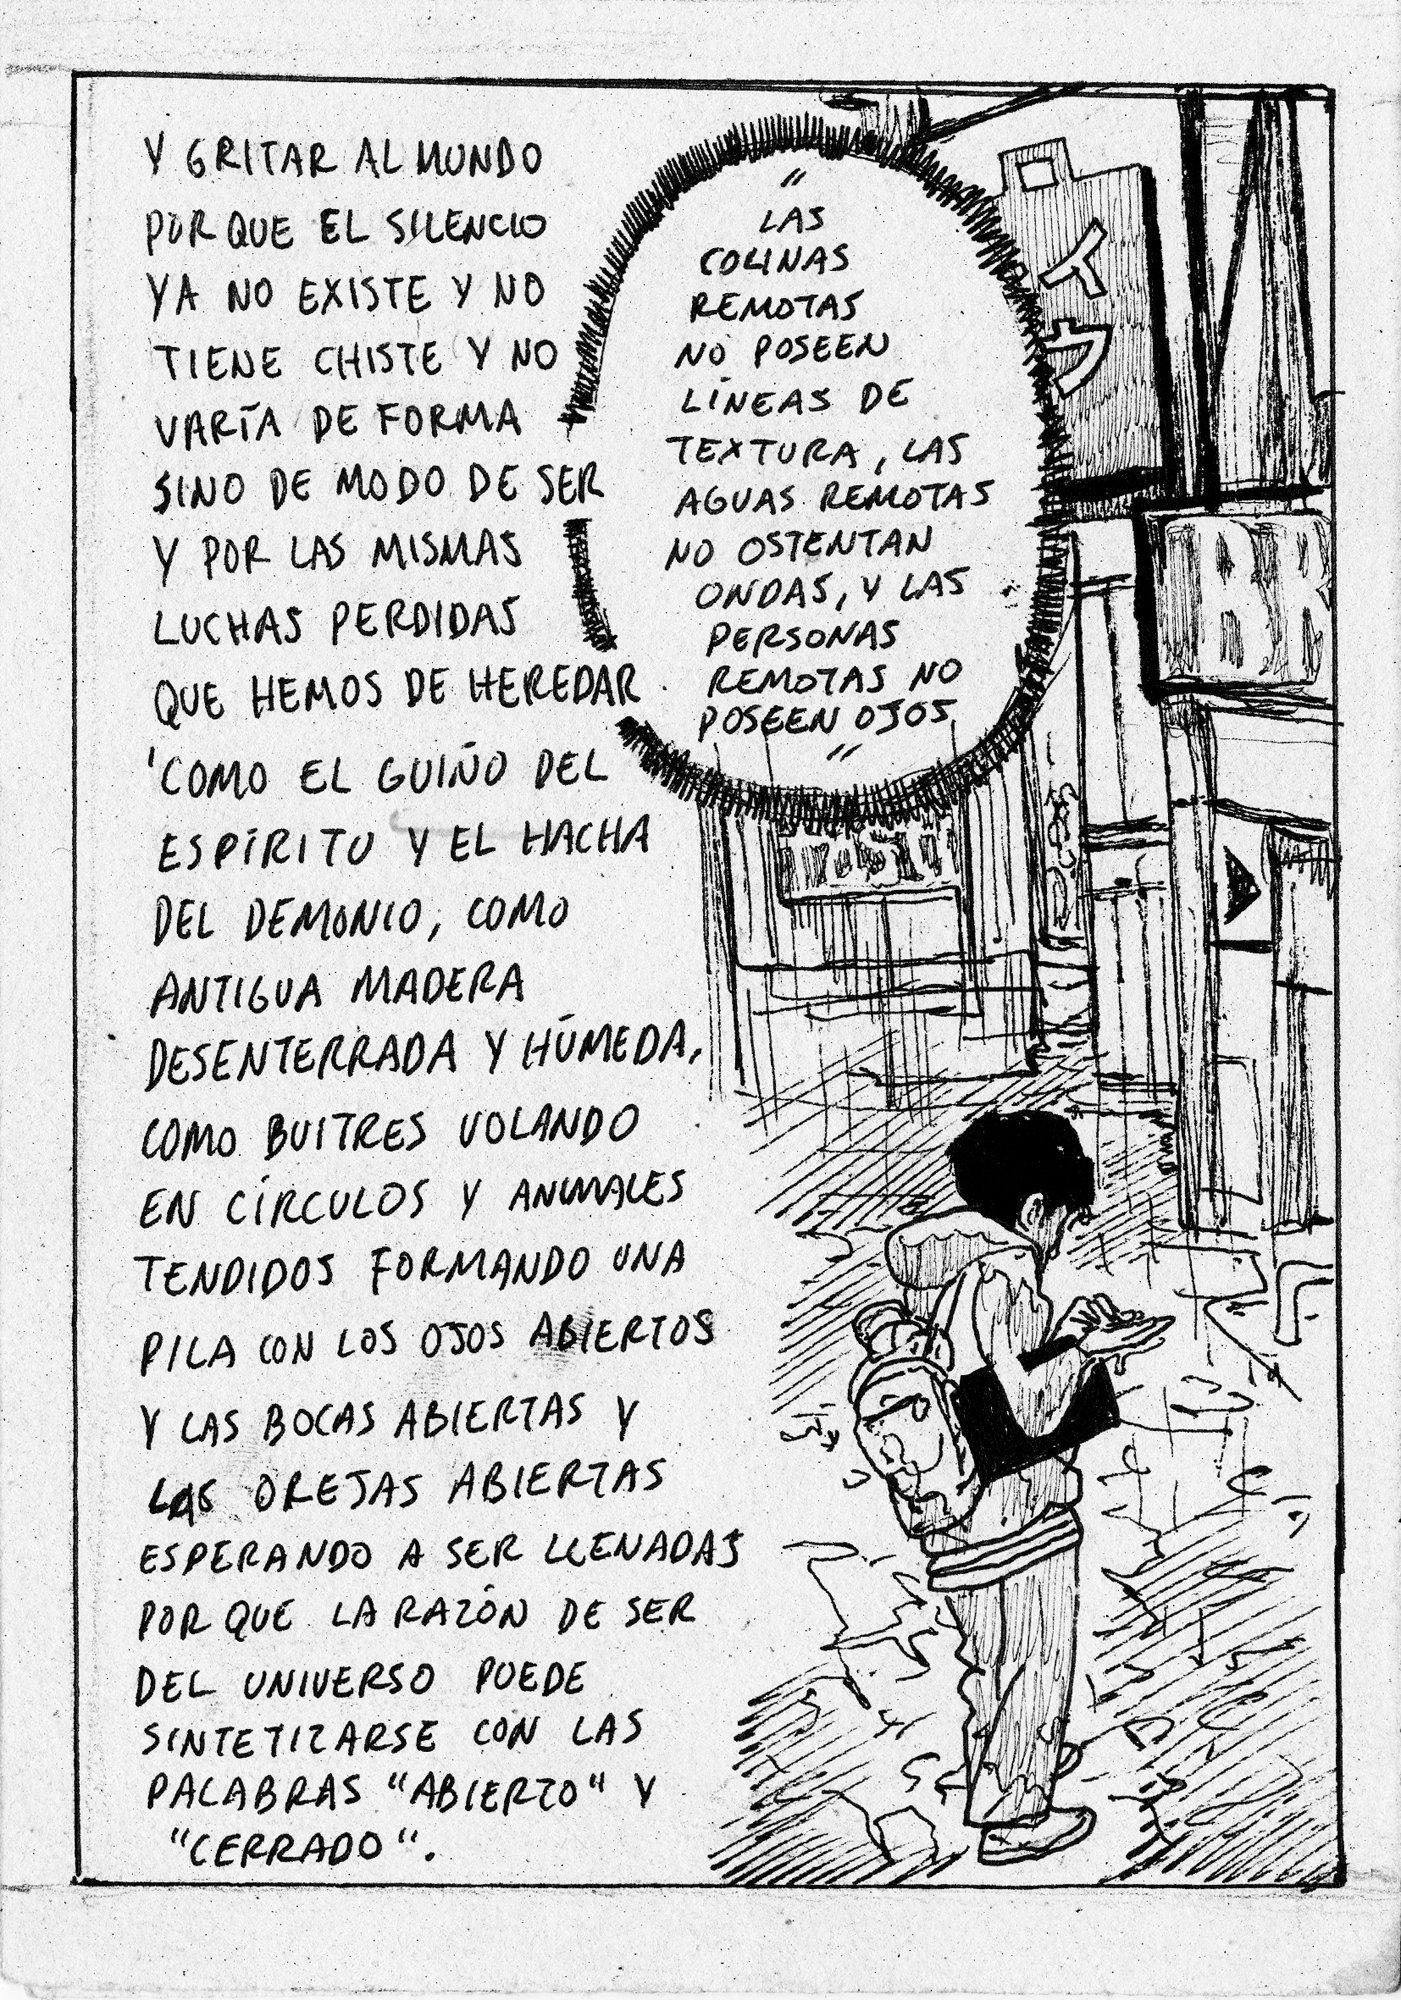 Y GRITAR AL MUNDO
PORQUE EL SILENCIO
YA NO EXISTE Y NO
TIENE CHISTE Y NO
VARÍA DE FORMA
SINO DE MODO DE SER
Y POR LAS MISMAS
LUCHAS PERDIDAS
QUE HEMOS DE HEREDAR.
'COMO EL GUIÑO DEL
ESPÍRITU Y EL HACHA
DEL DEMONIO, COMO
ANTIGUA MADERA
DESENTERRADA Y HÚMEDA,
COMO BUITRES VOLANDO
EN CÍRCULOS Y ANIMALES
TENDIDOS FORMANDO UNA
PILA CON LOS OJOS ABIERTOS
Y LAS BOCAS ABIERTAS Y
LAS OREJAS ABIERTAS
ESPERANDO A SER LLENADAS
PORQUE LA RAZÓN DE SER
DEL UNIVERSO PUEDE
SINTETIZARSE CON LAS
PALABRAS "ABIERTO" Y
"CERRADO".
"
LAS
COLINAS
REMOTAS
NO POSEEN
LÍNEAS DE
TEXTURA, LAS
AGUAS REMOTAS
NO OSTENTAN
ONDAS, Y LAS
PERSONAS
REMOTAS NO
POSEEN OJOS
"